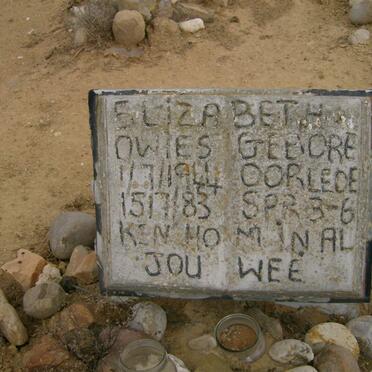 ELIZABETH
OWIES GEBORE
1/7/1944 OORLEDE
15/7/83 SPR 3-6
KEN HOM IN AL
JOU WEE